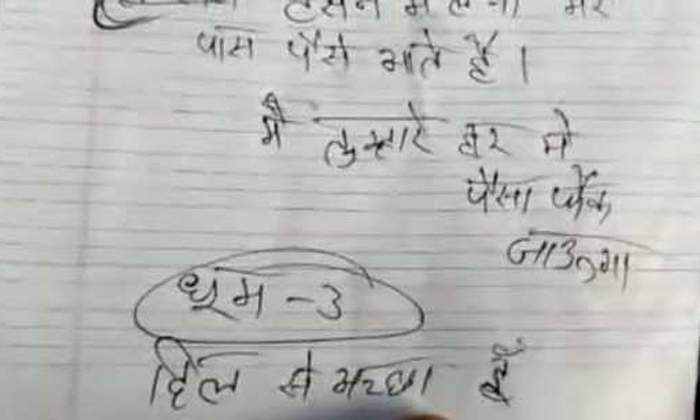 पास पैसे आते हैं।
मै तुम्हारे घर मे
पैसा फेंक
जाउन्गा
धूम -3
दिल से अच्छा हूँ